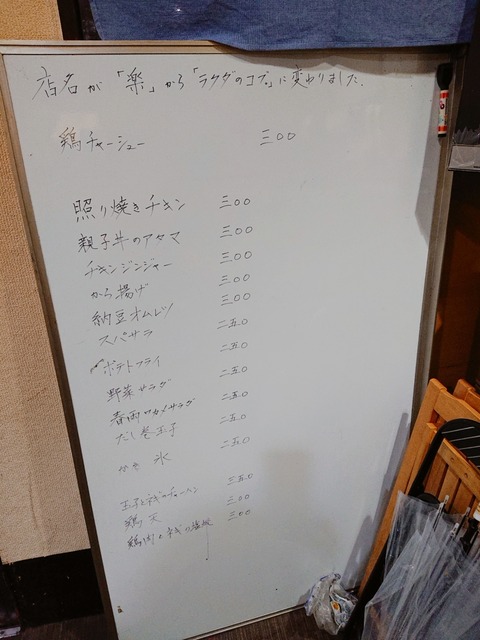 店名が「楽」から「ラクダのコブ」に変わりました.
鶏チャーシュー 三00
照り焼きチキン 三00
親子丼のアタマ 三00
チキンジンジャー 三00
から揚げ 三00
納豆オムレツ 三00
スパサラ 二五0
ポテトフライ 二五0
野菜サラダ 二五0
春雨ワカメサラダ 二五0
だし巻玉子 二五0
かき氷 二五0
玉子とネギのチャーハン 三五0
鶏天 三00
鶏肉とネギの 三00